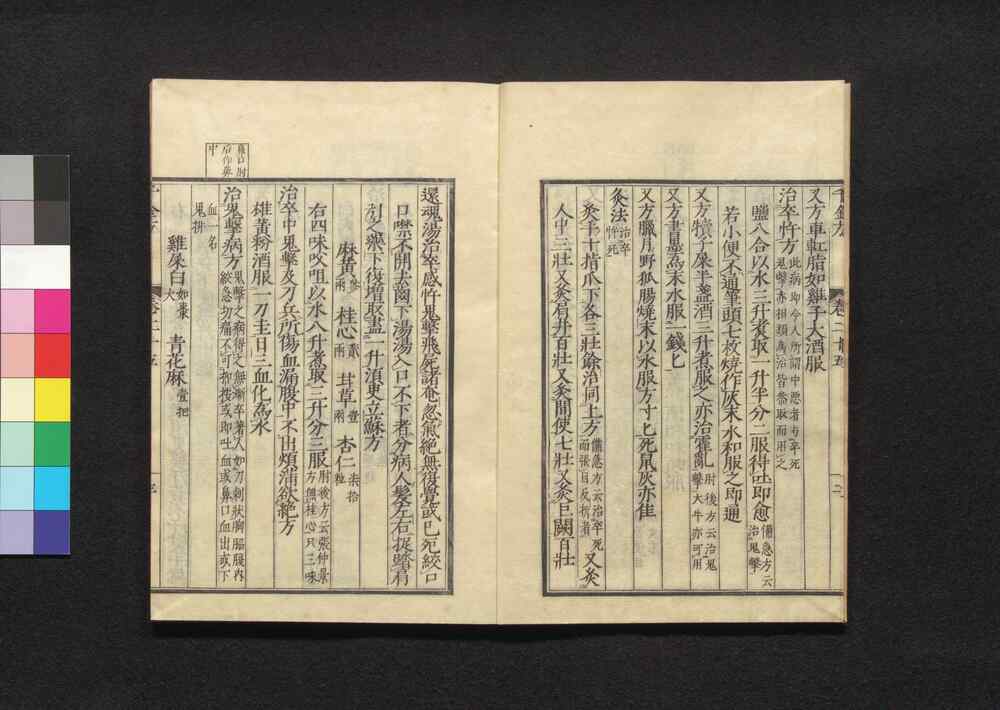 又方車釭脂如雞子大酒服
治卒忤方此病即今人所謂中惡者與卒死
鬼擊亦相類為治皆參取而用之
鹽八合以水三升煮取一升半分二服得吐即愈備急方云
治鬼擊
若小便不通筆頭七枚燒作灰末水和服之即通
又方犢子屎半盞酒三升煮服之亦治霍亂肘後方云治鬼
擊大牛亦可用
又方書墨為末水服一錢匕
又方臘月野狐腸燒末以水服方寸匕死鼠灰亦佳
灸法治卒
忤死
灸手十指爪下各三壯餘治同上方備急方云治卒死
而張目反折者又灸
人中三壯又灸肩井百壯又灸間使七壯又灸巨闕百壯
還魂湯治卒感忤鬼擊飛尸諸奄忽氣絕無復覺或已死絞口
口噤不開去齒下湯湯入口不下者分病人髮左右捉踏肩
引之藥下復增取盡一升須臾立蘇方
麻黃參
兩 桂心貳
兩 甘草壹
兩 杏仁柒拾
粒
右四味㕮咀以水八升煮取三升分三服肘後方云張仲景
方無桂心只三味
治卒中鬼擊及刀兵所傷血漏腹中不出煩滿欲絕方
雄黃粉酒服一刀圭日三血化為水
治鬼擊病方鬼擊之病得之無漸卒著人如刀刺狀胸脇腹內
絞急切痛不可抑按或即吐血或鼻口血出或下
血一名
鬼排
雞屎白如棗
大 青花麻壹把